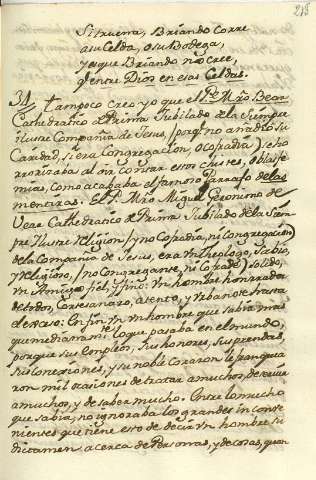 215
Si truena, Briando Corre
a su Celda, o su Bodega,
y aque Briando no Cree,
qe entre Dios en esas Celdas.
31 tampoco creo yo que el Pe. Mro Bear
Cathedratico de Prima Jubilado de la Siempre
ilustre Compañia de Jesus, (porqe no añadio su
Caridad, si era Congregacion, o cofradia) se ho
rrorizaba al oir contar estos chistes, o blasfe
mias, como acababa el famoso Parrafo de las
mentiras. El P. Mro Miguel Geronimo de
Vear Cathedratico de Prima Jubilado de la Siem
pre Ilustre Religion (y no Cofradia, ni Congregacion)
de la Compañia de Jesus, era Vn theologo, Sabio,
y Religioso, (no Congreganse, ni Cofrade) solido,
Vn Amigo fiel, y fino: Vn hombre honrrador
de todos, Cortesano, atento, y Vrbano hasta
el exceso: En fin Vn Vn hombre que sabia mas
que medianamte lo que pasaba en el mundo,
porque sus empleos, Sus honores, Sus prendas,
Sus Conexiones, y su noble Corazon le franquea
ron mil ocasiones de tratar a muchos, de
a muchos, y de saber mucho. Entre lo mucho
que sabia, no ignoraba los grandes inconve
nientes que tiene esto de decir Vn hombre su
dictamen acerca de Personas, y de cosas, quan